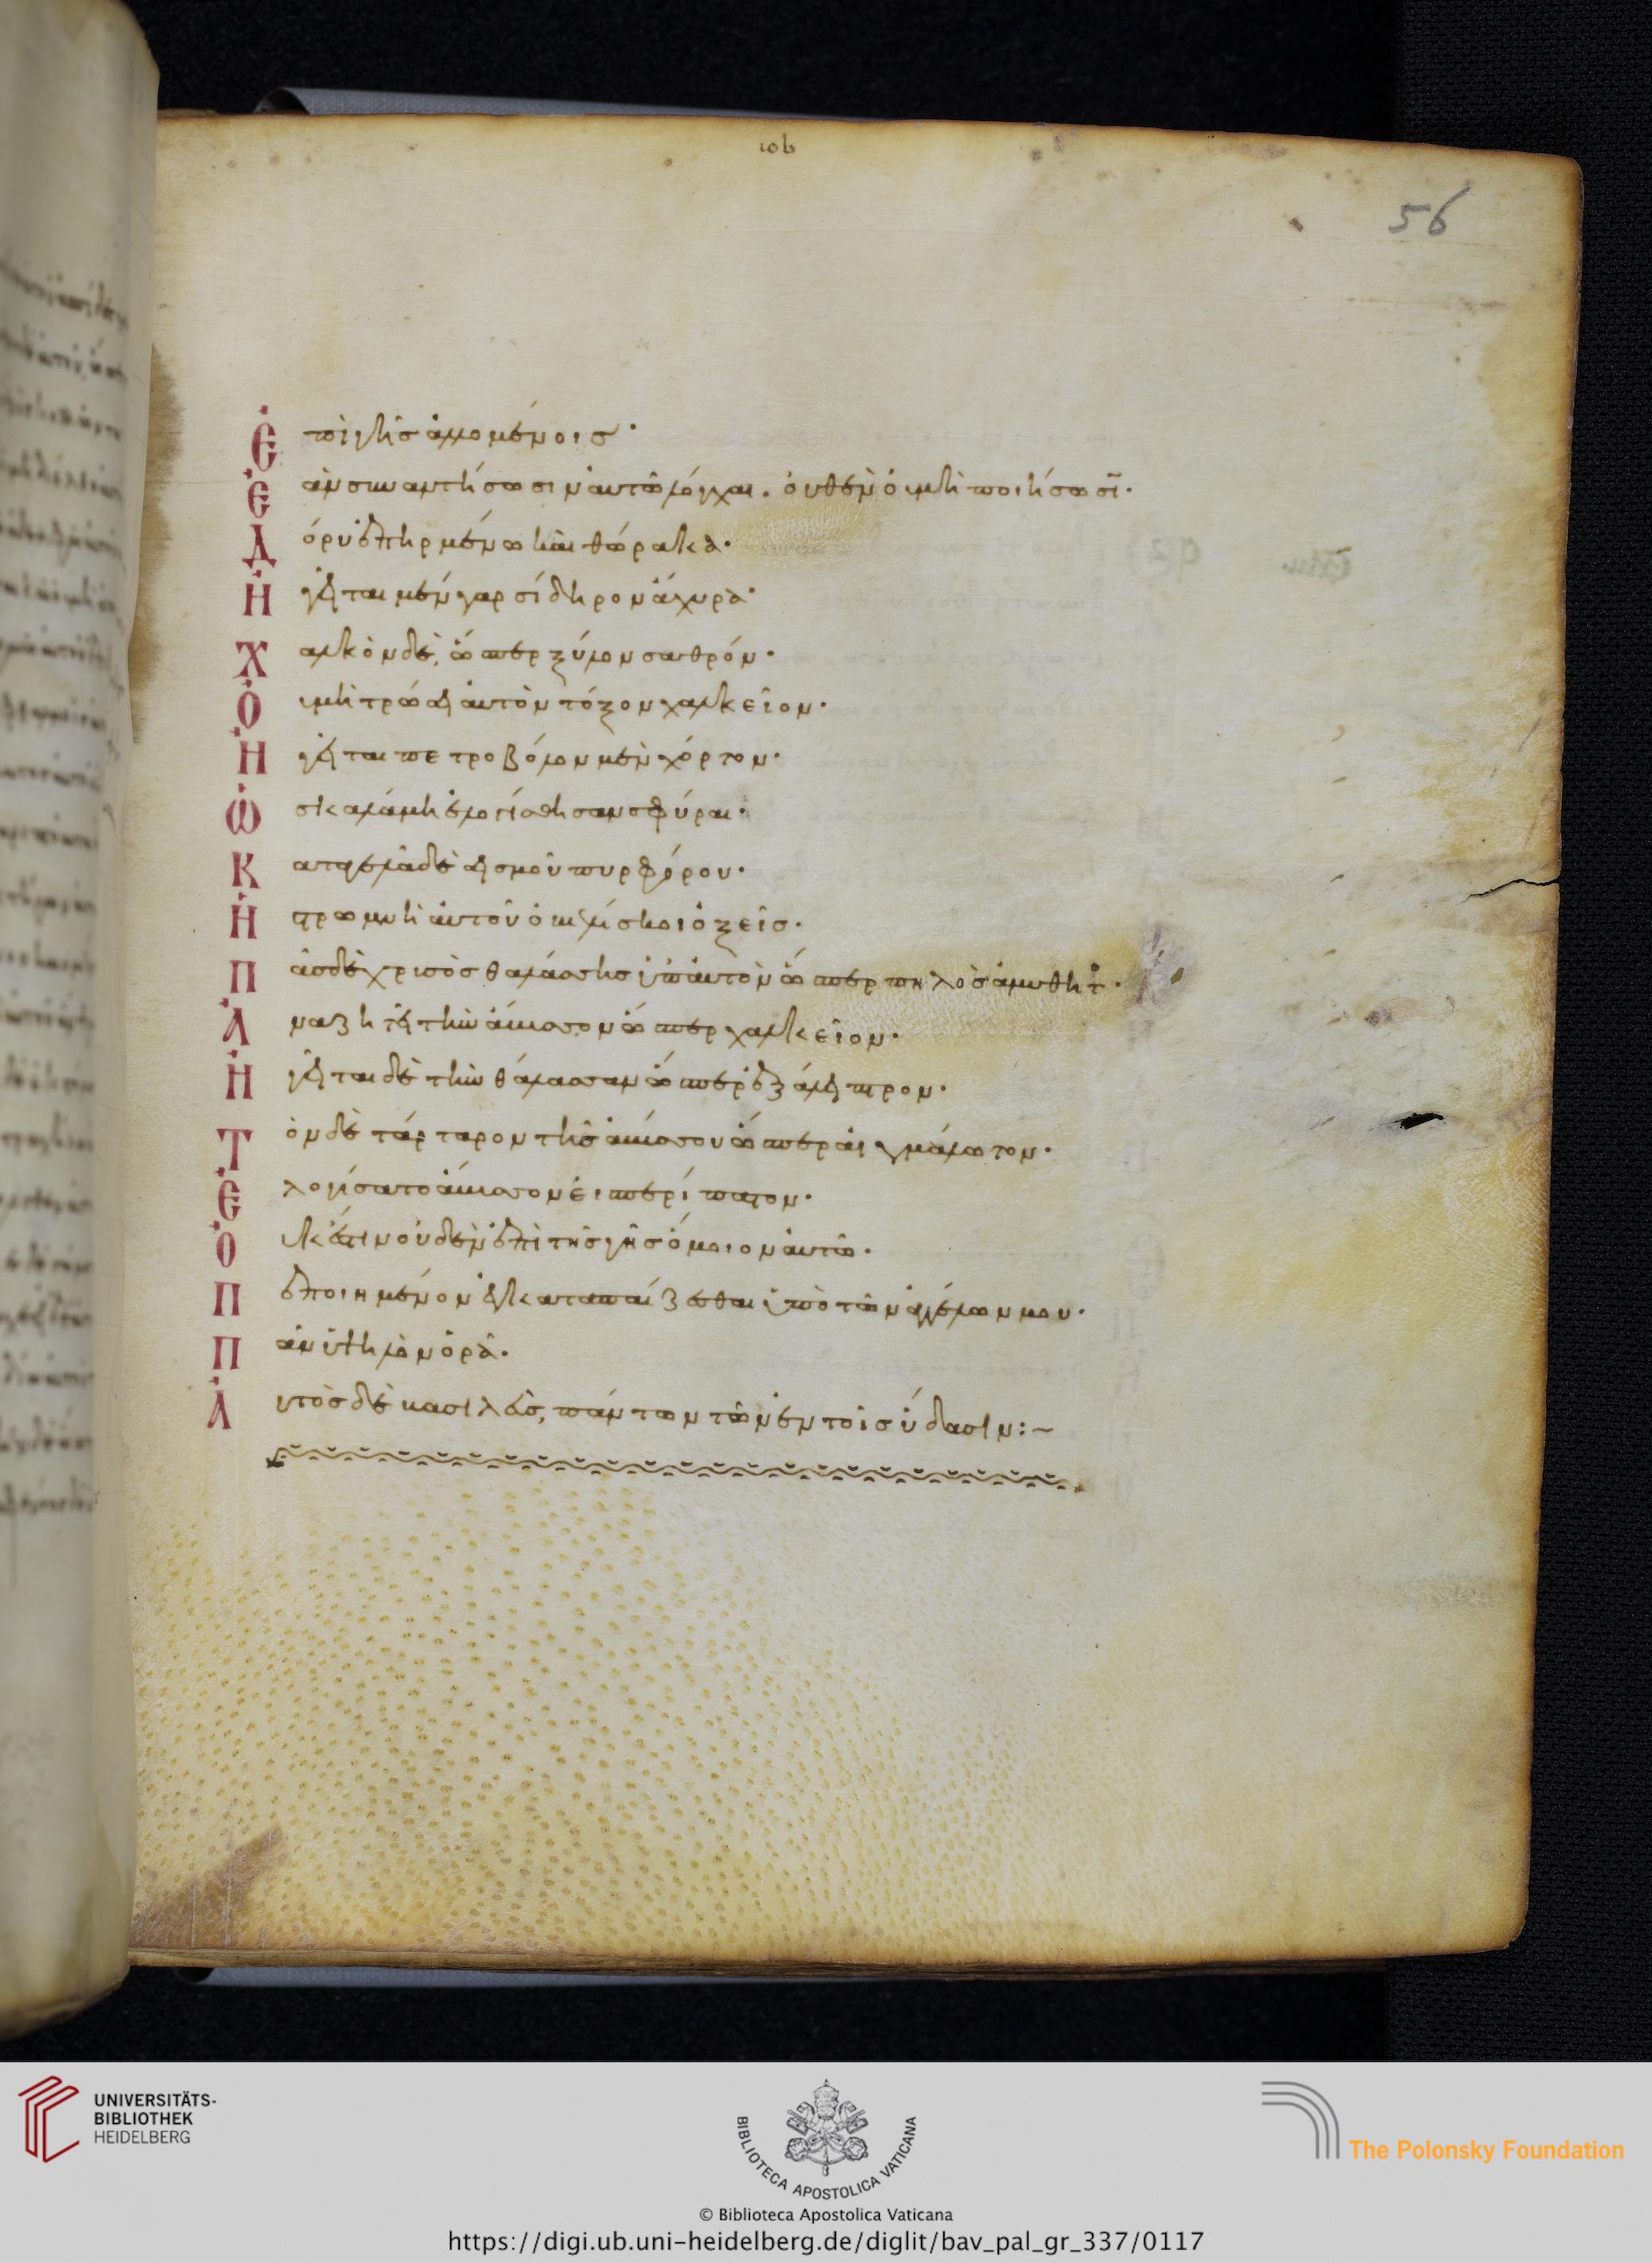 ιοb
56
Ἐπὶ γῆς ἁλλομένοις·
Ἐὰν συναντήσωσιν αὐτῶ λόγχαι· οὐθὲν οὐ μὴ ποιήσωσῖ·
Δόρυ ἐπηρμένω καὶ θώρακα·
Ἡγεῖται μὲν γὰρ σίδηρον ἄχυρα·
Χαλκὸν δὲ, ὥσπερ ξύλον σαθρόν·
Οὐ μὴ τρώσει αὐτὸν τόξον χαλκεῖον·
Ἡγεῖται πετροβόλον μὲν χόρτον·
Ὡς καλάμη ἐλογίσθησαν σφύραι·
Καταγελᾶ δὲ σεισμοῦ πυρφόρου·
Ἡ στρωμνὴ αὐτοῦ ὀβελίσκοι ὀξεῖς·
Πᾶς δὲ χρυσὸς θαλάσσης ὑπ' αὐτὸν ὥσπερ πηλὸς ἀμύθητο·
Ἀναζεῖ τὴν ἄβυσσον ὥσπερ χαλκεῖον·
Ἡγεῖται δὲ τὴν θάλασσαν ὥσπερ ἐξάλειπτρον·
Τὸν δὲ τάρταρον τῆς ἀβύσσου ὥσπερ αἰχμάλωτον·
Ἐλογίσατο ἄβυσσον εἰς περίπατον·
Οὐκ ἔστιν οὐδὲν ἐπὶ τῆς γῆς ὅμοιον αὐτῶ·
Πεποιημένον ἐγκαταπαίζεσθαι ὑπὸ τῶν ἀγγέλων μου·
Πᾶν ὑψηλὸν ὁρᾶ·
Αὐτὸς δὲ βασιλεὺς, πάντων τῶν ἐν τοῖς ὕδασιν:~
UNIVERSITÄTS-
BIBLIOTHEK
HEIDELBERG
BIBLIOTECA APOSTOLICA VATICANA
The Polonsky Foundation
© Biblioteca Apostolica Vaticana
https://digi.ub.uni-heidelberg.de/diglit/bav_pal_gr_337/0117